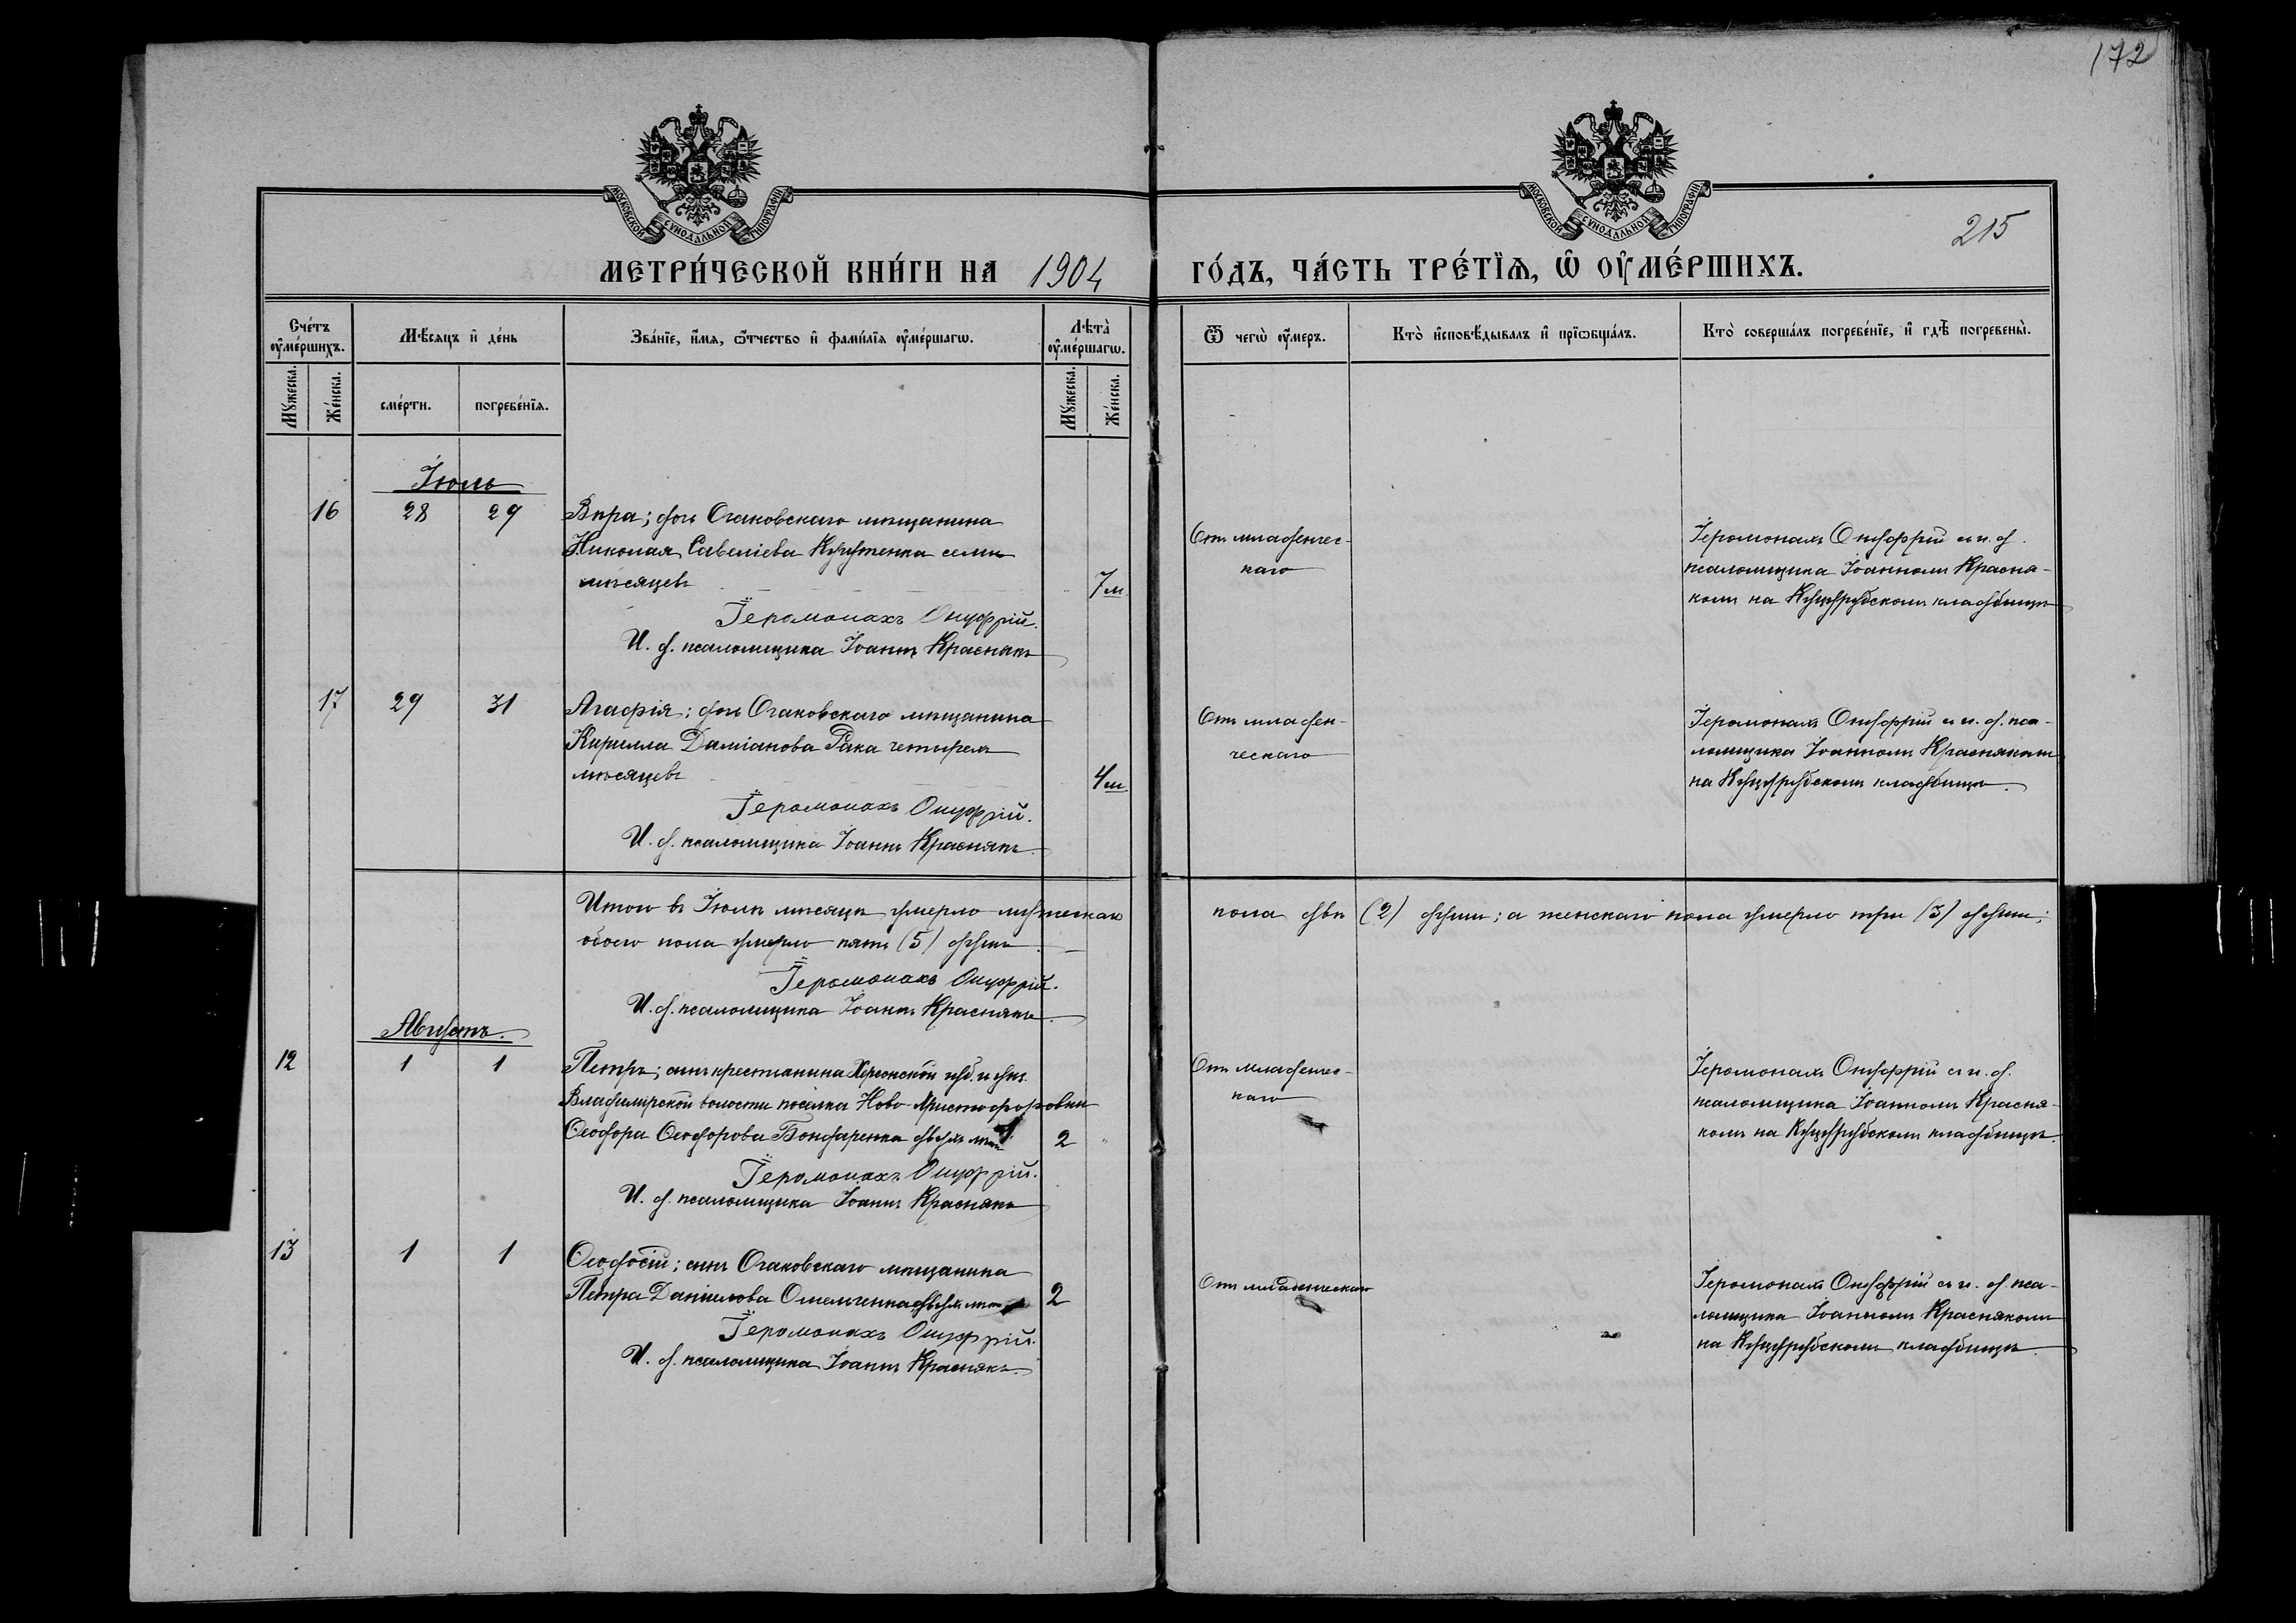 172
МОСКОВСКОЙ СѴНОДАЛЬНОЙ ТИПОГРАФІИ
МОСКОВСКОЙ СѴНОДАЛЬНОЙ ТИПОГРАФІИ
215
МЕТРИ́ЧЕСКОЙ КНИ́ГИ НА 1904 ГО́ДЪ, ЧА́СТЬ ТРЕ́ТЇѦ, Ѡ҆ ОУ҆МЕ́РШИХЪ.
Сче́тъ оу҆ме́ршихъ.
Мѣ́сяцъ и҆ де́нь
Зва́нїе, и҆́мя, ѻ҆́тчество и҆ фами́лїя оу҆ме́ршагѡ.
Лѣта̀ оу҆ме́ршагѡ.
Ѿ чегѡ̀ оу҆́меръ.
Кто̀ и҆сповѣ́дывалъ и҆ прїѡбща́лъ.
Кто̀ соверша́лъ погребе́нїе, и҆ гдѣ̀ погребены̀.
Мꙋ́жеска.
Же́нска.
сме́рти.
погребе́нїя.
Мꙋ́жеска.
Же́нска.
Іюль
16 28 29 Вѣра; дочь Очаковскаго мѣщанина
Николая Савеліева Куутенка семи
мѣсяцевъ 7 м.
Іеромонахъ Онуфрій.
И. д. псаломщика Іоаннъ Краснякъ
Отъ младенчес-
каго
Іеромонахъ Онуфрій съ и. д.
псаломщика Іоанномъ Красня-
комъ на Куцурубскомъ кладбищѣ
17 29 31 Агафія; дочь Очаковскаго мѣщанина
Кирилла Даміанова Рака четырехъ
мѣсяцевъ 4 м.
Іеромонахъ Онуфрій.
И. д. псаломщика Іоаннъ Краснякъ.
Отъ младен-
ческаго
Іеромонахъ Онуфрій съ и. д. пса-
ломщика Іоанномъ Краснякомъ
на Куцурубскомъ кладбищѣ.
Итого въ Іюлѣ мѣсяцѣ умерло мужескаго пола двѣ (2) души; а женскаго пола умерло три (3) души;
обоего пола умерло пять (5) душъ.
Іеромонахъ Онуфрій.
И. д. псаломщика Іоаннъ Краснякъ.
Августъ.
12 1 1 Петръ; сынъ крестьянина Херсонской губ. и уѣз.
Владимірской волости посёлка Ново-Христофоровки
Ѳеодора Ѳеодорова Бондаренка двухъ лѣтъ 2
Іеромонахъ Онуфрій.
И. д. псаломщика Іоаннъ Краснякъ
Отъ младенчес-
каго
Іеромонахъ Онуфрій съ и. д.
псаломщика Іоанномъ Красня-
комъ на Куцурубскомъ кладбищѣ.
13 1 1 Ѳеодосій; сынъ Очаковскаго мѣщанина
Петра Даніилова Омельченка двухъ лѣтъ 2
Іеромонахъ Онуфрій.
И. д. псаломщика Іоаннъ Краснякъ.
Отъ младенческаго
Іеромонахъ Онуфрій съ и. д. пса-
ломщика Іоанномъ Краснякомъ
на Куцурубскомъ кладбищѣ.